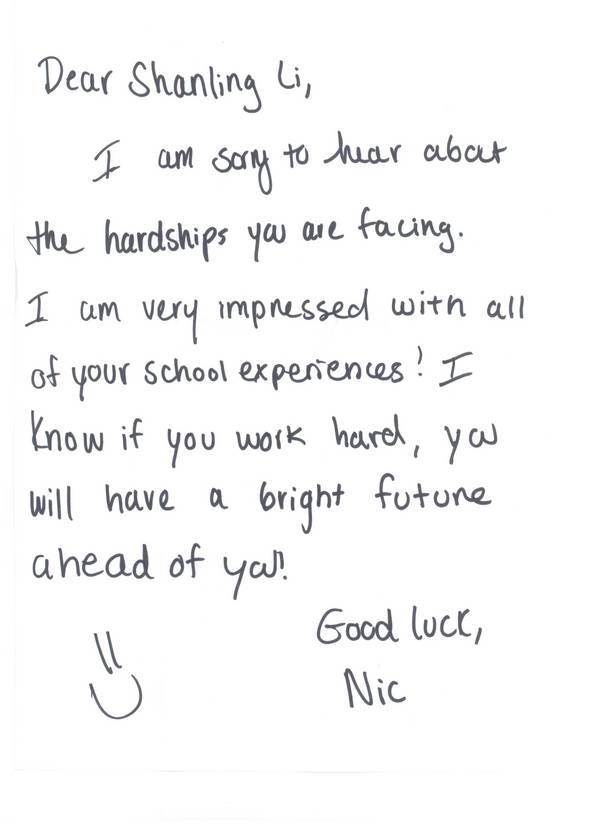 Dear Shanling Li,
I am sorry to hear about
the hardships you are facing.
I am very impressed with all
of your school experiences! I
know if you work hard, you
will have a bright future
ahead of you!
Good luck,
Nic